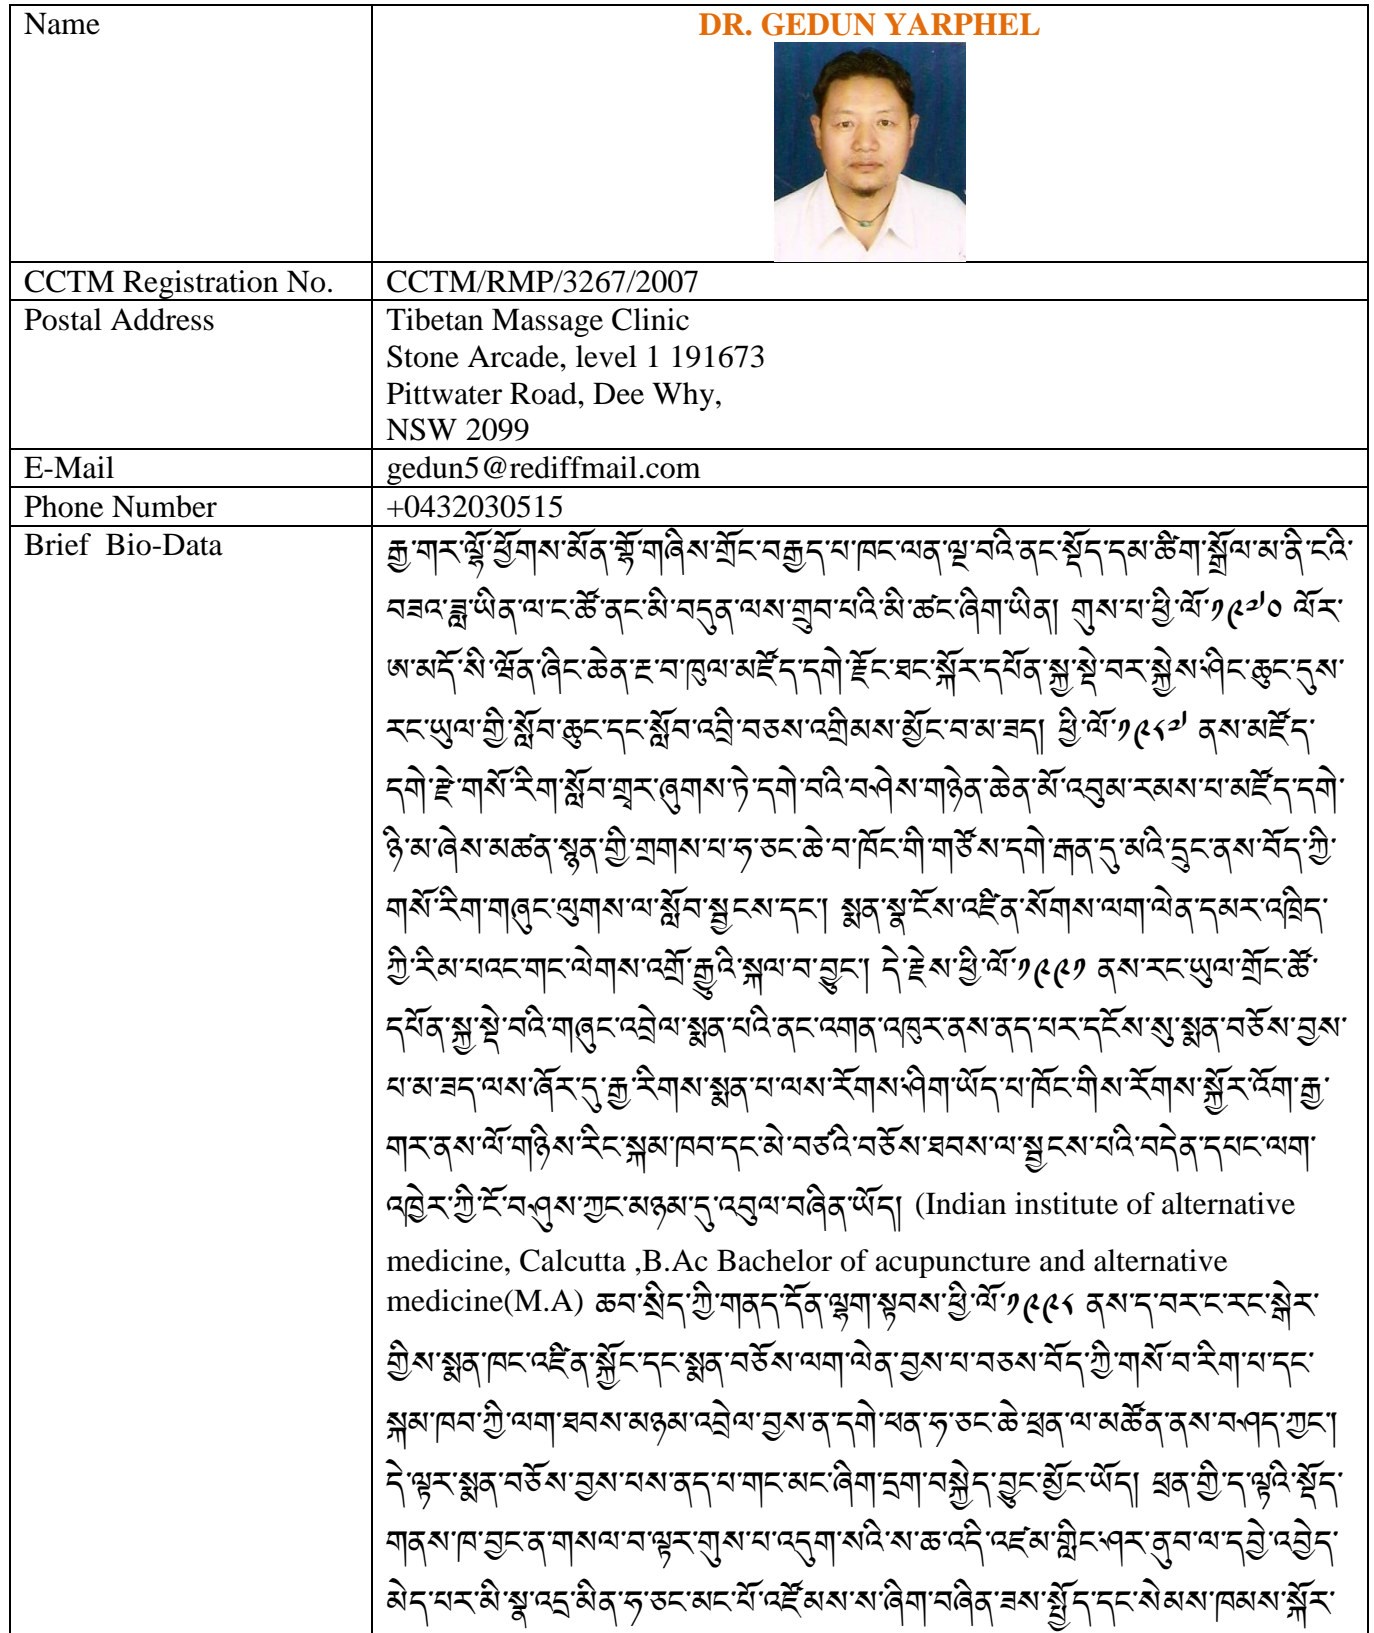 Name DR. GEDUN YARPHEL
CCTM Registration No. CCTM/RMP/3267/2007
Postal Address Tibetan Massage Clinic
Stone Arcade, level 1 191673
Pittwater Road, Dee Why,
NSW 2099
E-Mail gedun5@rediffmail.com
Phone Number +0432030515
Brief Bio-Data རྒྱ་གར་ལྷོ་ཕྱོགས་མོན་གྷོ་གཞིས་གྲོང་བརྒྱད་པ་ཁང་ཨན་ལྔ་བའི་ནང་སྡོད་དམ་ཚིག་སྒྲོལ་མ་ནི་ངའི་
བཟའ་ཟླ་ཡིན་ལ་ང་ཚོ་ནང་མི་བདུན་ལས་གྲུབ་པའི་མི་ཚང་ཞིག་ཡིན། གུས་པ་ཕྱི་ལོ་༡༩༧༠ ལོར་
ཨ་མདོ་སི་ཝོན་ཞིང་ཆེན་རྔ་བ་ཁུལ་མཛོད་དགེ་རྫོང་ཐང་སྐོར་དཔོན་སྐྱ་སྡེ་བར་སྐྱེས་ཤིང་ཆུང་དུས་
རང་ཡུལ་གྱི་སློབ་ཆུང་དང་སློབ་འབྲི་བཅས་འགྲིམས་མྱོང་བ་མ་ཟད། ཕྱི་ལོ་༡༩༨༧ ནས་མཛོད་
དགེ་རྫེ་གསོ་རིག་སློབ་གྲྭར་ཞུགས་ཏེ་དགེ་བའི་བཤེས་གཉེན་ཆེན་མོ་འབུམ་རམས་པ་མཛོད་དགེ་
ཉི་མ་ཞེས་མཚན་སྙན་གྱི་གྲགས་པ་ཧ་ཅང་ཆེ་བ་ཁོང་གི་གཙོས་དགེ་རྒན་དུ་མའི་དྲུང་ནས་བོད་ཀྱི་
གསོ་རིག་གཞུང་ལུགས་ལ་སློབ་སྦྱངས་དང་། སྨན་སྣ་ངོས་འཛིན་སོགས་ལག་ལེན་དམར་འཁྲིད་
ཀྱི་རིམ་པའང་གང་ལེགས་འགྲོ་རྒྱུའི་སྐལ་བ་བྱུང་། དེ་རྗེས་ཕྱི་ལོ་༡༩༩༡ ནས་རང་ཡུལ་གྲོང་ཚོ་
དཔོན་སྐྱ་སྡེ་བའི་གཞུང་འབྲེལ་སྨན་པའི་ནང་འགན་འཁུར་ནས་ནད་པར་དངོས་སུ་སྨན་བཅོས་བྱས་
པ་མ་ཟད་ལས་ཞོར་དུ་རྒྱ་རིགས་སྨན་པ་ལས་རོགས་ཤིག་ཡོད་པ་ཁོང་གིས་རོགས་སྐྱོར་འོག་རྒྱ་
གར་ནས་ལོ་གཉིས་རིང་སྐམ་ཁབ་དང་མེ་བཙའི་བཅོས་ཐབས་ལ་སྦྱངས་པའི་བདེན་དཔང་ལག་
འཁྱེར་ཀྱི་ངོ་བཤུས་ཀྱང་མཉམ་དུ་འབུལ་བཞིན་ཡོད། (Indian institute of alternative
medicine, Calcutta ,B.Ac Bachelor of acupuncture and alternative
medicine(M.A) ཆབ་སྲིད་ཀྱི་གནད་དོན་ལྷག་སྟབས་ཕྱི་ལོ་༡༩༩༨ ནས་ད་བར་ང་རང་སྒེར་
གྱིས་སྨན་ཁང་འཛིན་སྐྱོང་དང་སྨན་བཅོས་ལག་ལེན་བྱས་པ་བཅས་བོད་ཀྱི་གསོ་བ་རིག་པ་དང་
སྐམ་ཁབ་ཀྱི་ལག་ཐབས་མཉམ་འབྲེལ་བྱས་ན་དགེ་ཕན་ཧ་ཅང་ཆེ་ཕྲན་ལ་མཚོན་ནས་བཤད་ཀྱང་།
དེ་ལྟར་སྨན་བཅོས་བྱས་པས་ནད་པ་གང་མང་ཞིག་དྲག་བསྐྱེད་བྱུང་མྱོང་ཡོད། ཕྲན་གྱི་ད་ལྟའི་སྡོད་
གནས་ཁ་བྱང་ན་གསལ་བ་ལྟར་གུས་པ་འདུག་སའི་ས་ཆ་འདི་འཛམ་གླིང་ཤར་ནུབ་ལ་དབྱེ་འབྱེད་
མེད་པར་མི་སྣ་འདྲ་མིན་ཧ་ཅང་མང་པོ་འཛོམས་ས་ཞིག་བཞིན་ཟས་སྤྱོད་དང་སེམས་ཁམས་སྐོར་